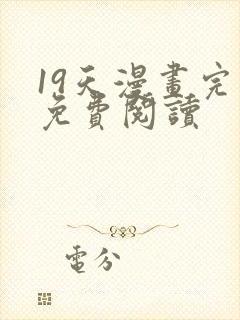 19天漫畫完
免費閱讀
電分